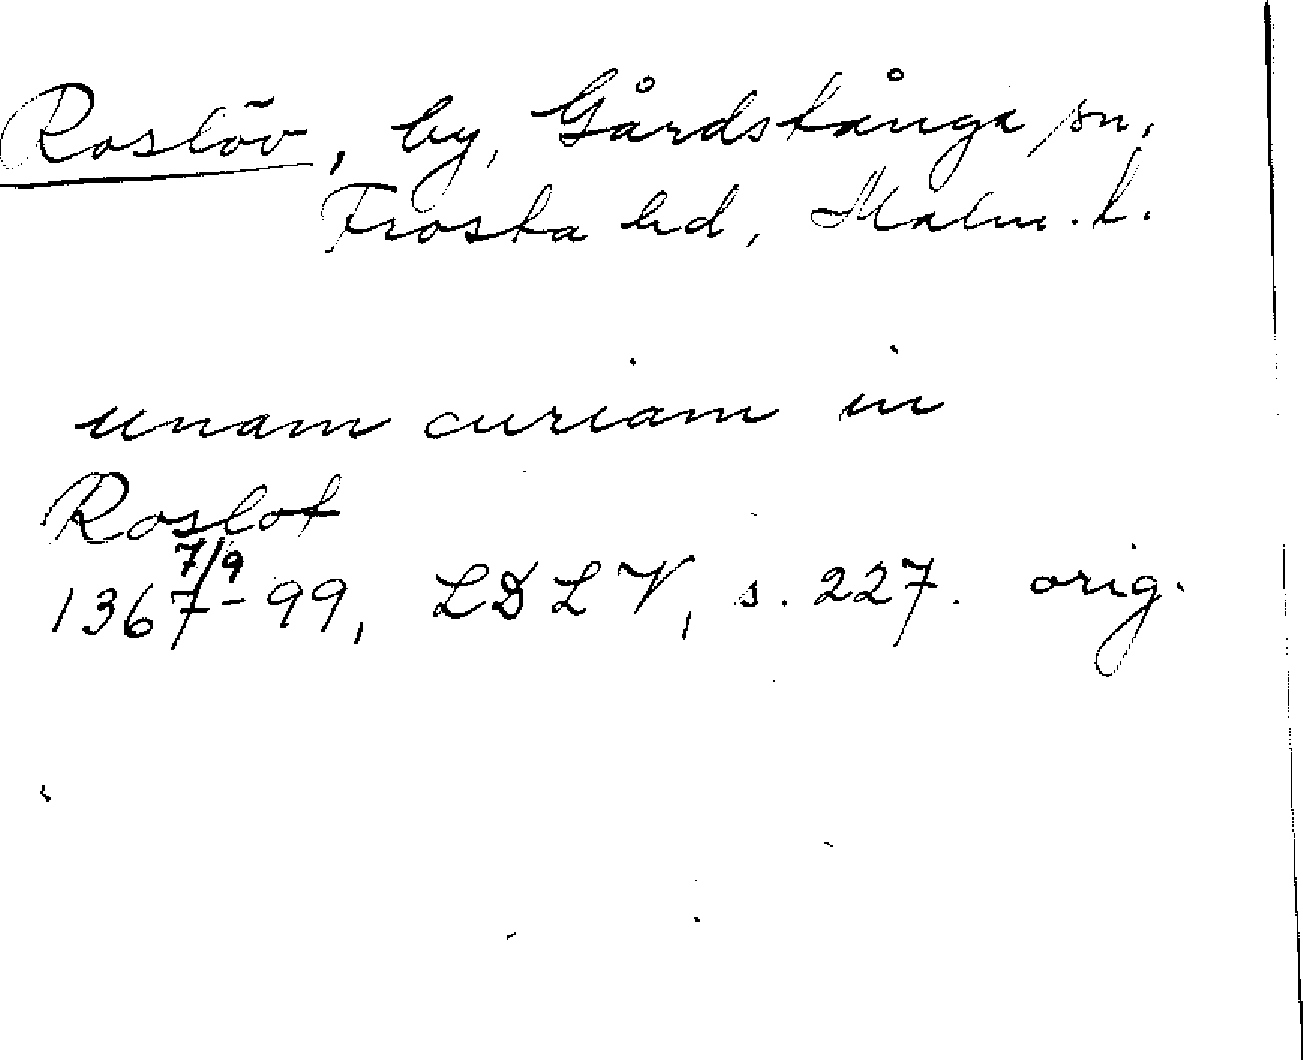 Roslöv, by, Gårdstånga sn,
Frosta hd, Malm. l.
unam curiam in
Roslof
7/9
1367-99, LDL V, s. 227. orig.